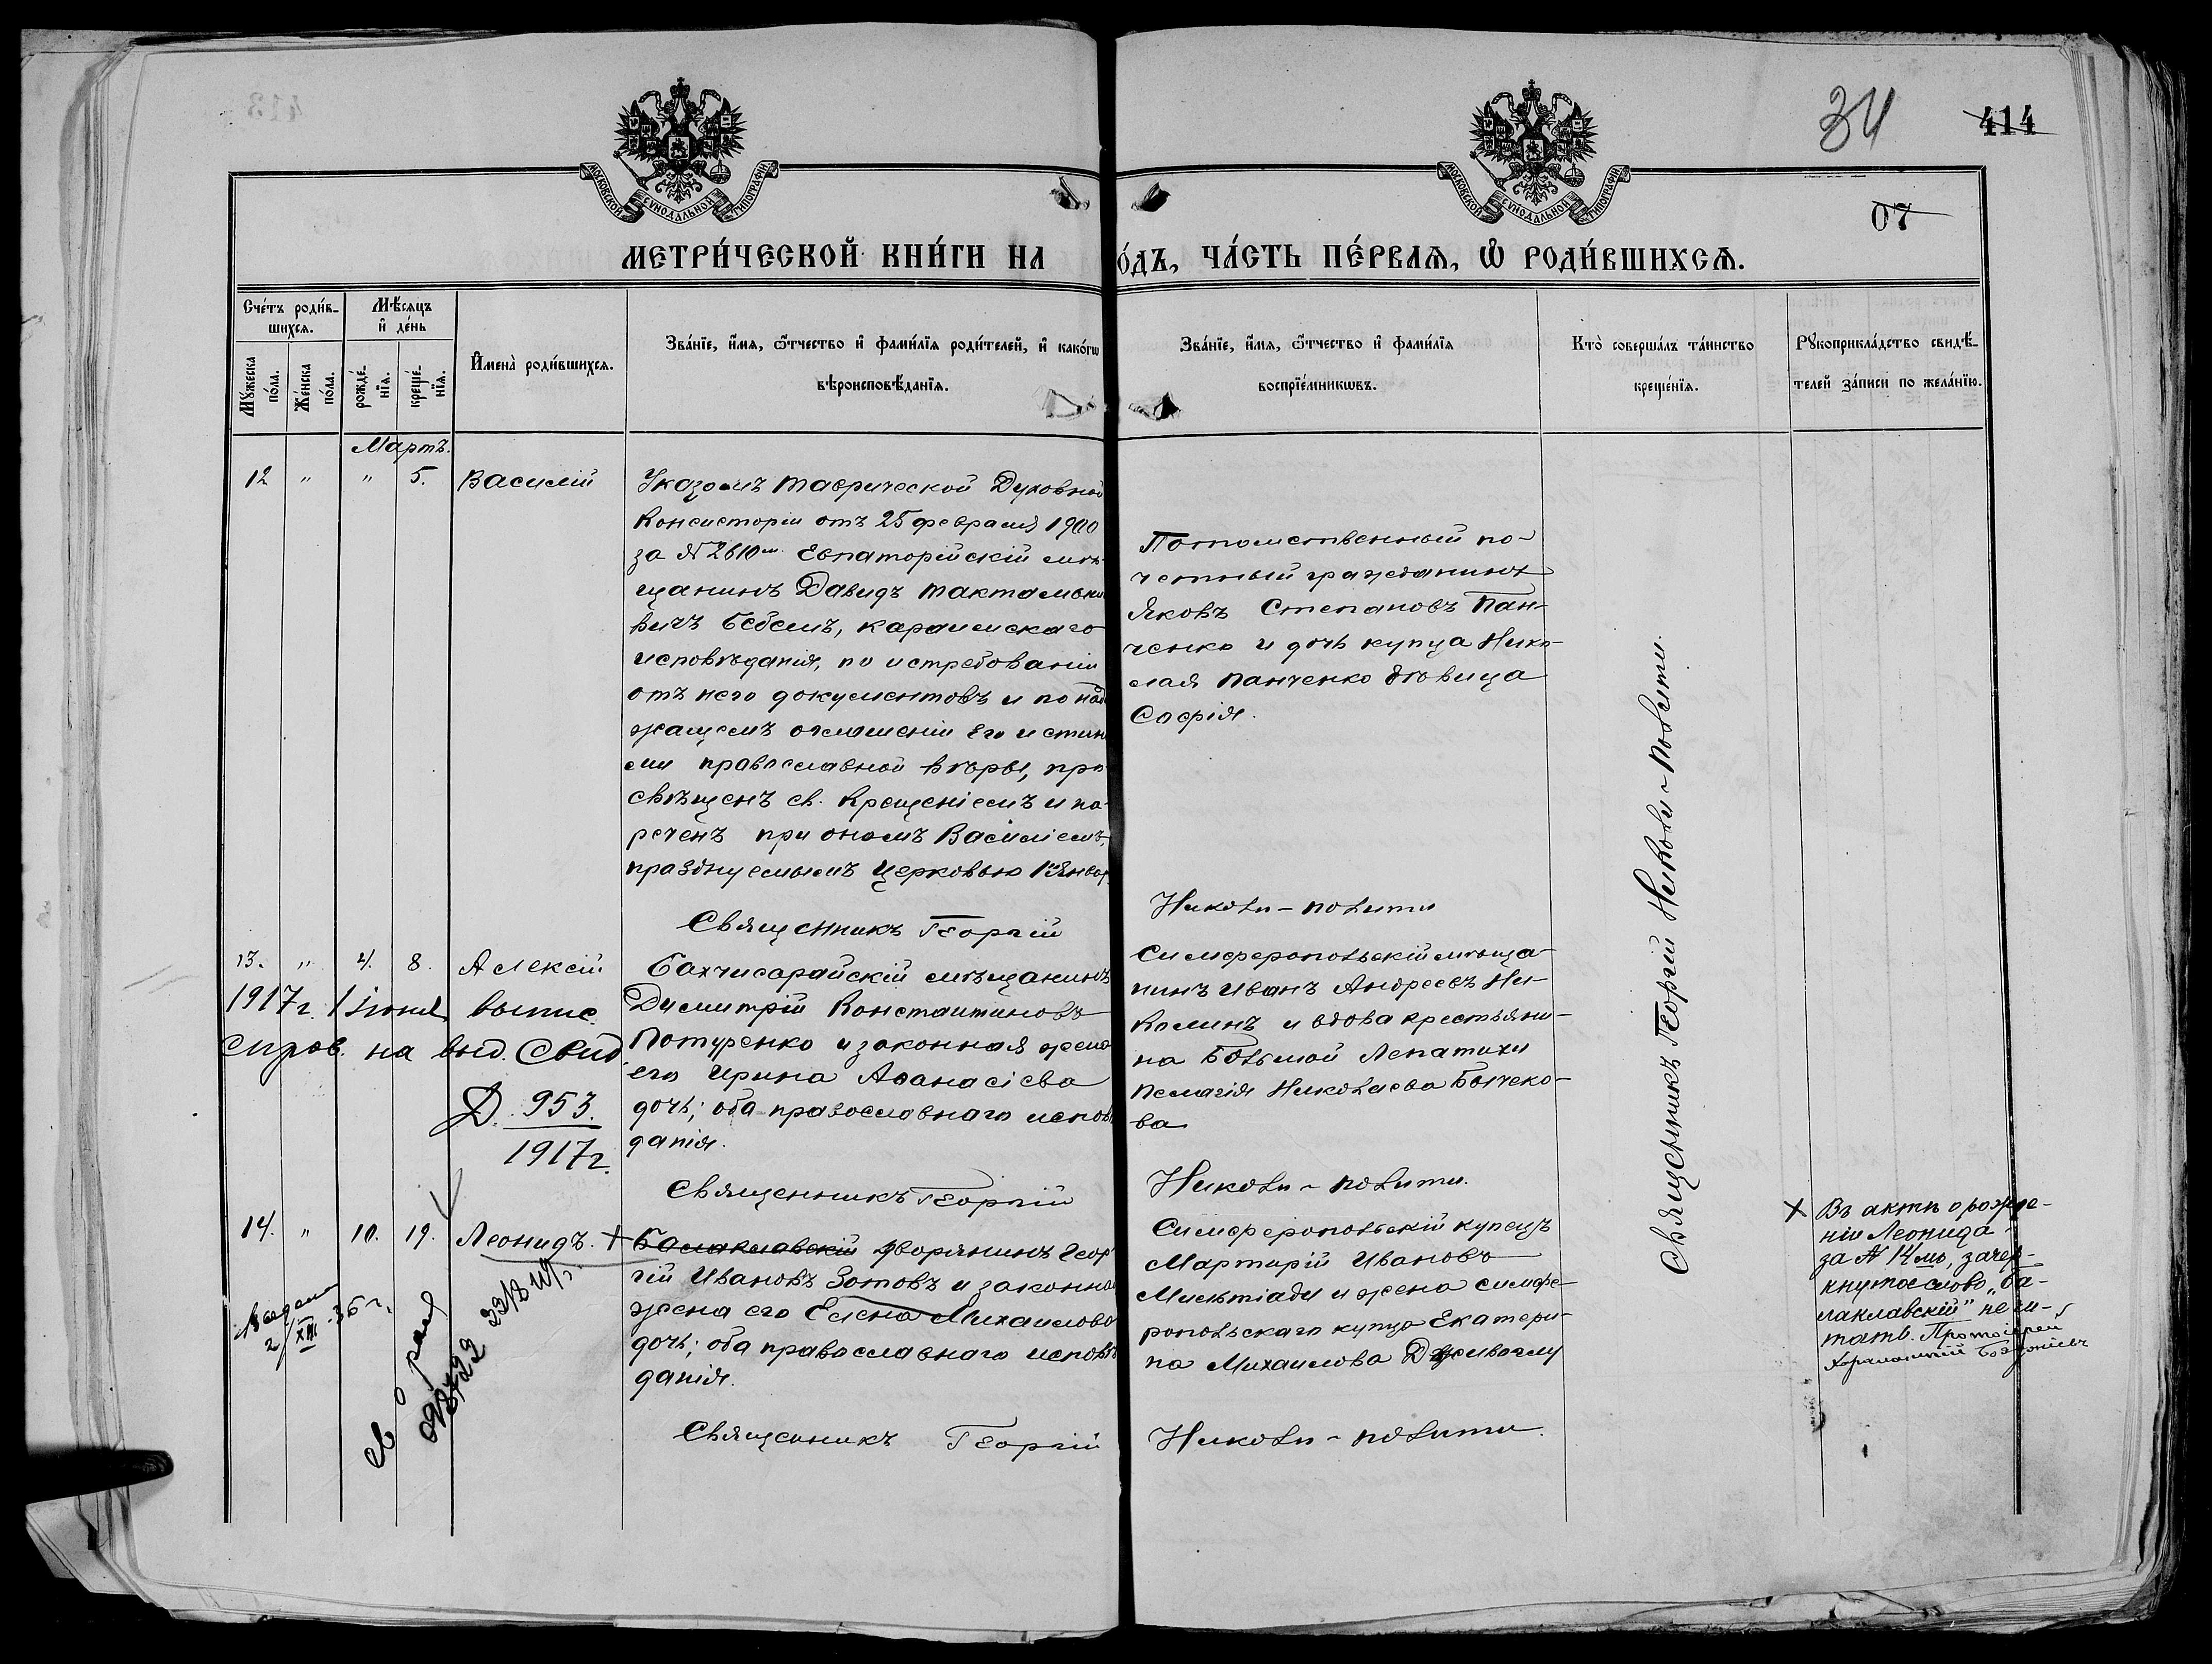 34
414
07
МОСКОВСКОЙ СѴНОДАЛЬНОЙ ТИПОГРАФІИ
МОСКОВСКОЙ СѴНОДАЛЬНОЙ ТИПОГРАФІИ
МЕТРИ́ЧЕСКОЙ КНИ́ГИ НА
О́ДЪ, ЧА́СТЬ ПЕ́РВАѦ, Ѡ РОДИ́ВШИХСѦ.
Сче́тъ роди́в-
шихсѧ.
Мѣ́сѧцъ
и҆ де́нь
Мꙋ́жеска по́ла.
Же́нска по́ла.
рожде́-нїѧ.
креще́-нїѧ.
И҆мена̀ роди́вшихсѧ.
Зва́нїе, и҆́мѧ, ѻ҆́тчество и҆ фами́лїѧ роди́телей, и҆ како́гѡ
вѣроисповѣ́данїѧ.
Зва́нїе, и҆́мѧ, ѻ҆́тчество и҆ фами́лїѧ
воспрїе́мникѡвъ.
Кто̀ соверша́лъ та́инство
креще́нїѧ.
Рꙋкоприкла́дство свидѣ́-
телей за́писи по жела́нїю.
Мартъ.
12 " " 5. Василій
Указомъ Таврической Духовной
Консисторіи отъ 25 февраля 1900
за № 2610м Евпаторійскій мѣ-
щанинъ Давидъ
вичъ Бебешъ, караимскаго
исповѣданія, по истребованіи
отъ него документовъ и по над
жащемъ оглашеніи его истин
ми православной вѣры, про-
свѣщенъ св. Крещеніемъ и на-
реченъ при ономъ Василіемъ,
празднуемымъ Церковью 1 Январ
Священникъ Георгій
Потомственный по-
четный гражданинъ
Яковъ Степановъ Пан-
ченко и дочь купца Нико-
лая Панченко дѣвица
Софія.
Николи-Полити
13. " 4. 8. Алексій
1917 г. 1 іюня выпис.
справ. на выд. Свид
Д. 953.
1917 г.
Бахчисарайскій мѣщанинъ
Димитрій Константиновъ
Потуренко и законная жена
его Ирина Аѳанасіева
дочь; оба православнаго исповѣ
данія.
Священникъ Георгій
Симферопольскій мѣща-
нинъ Иванъ Андреевъ Ни-
колинъ и вдова крестьяни-
на Большой Лепатихи
Пелагія Николаева
ва
Николи-Полити.
14. " 10. 19. Леонидъ. +
Балаклавскій дворянинъ Геор
гій Ивановъ Зотовъ и законна
жена его Елена Михаилова
дочь; оба православнаго исповѣ
данія.
Священникъ Георгій
Симферопольскій купецъ
Мартирій Ивановъ
Мильтіади и жена симфе-
ропольскаго купца Екатери-
на Михаилова
Николи-Полити.
2/XII-36 г.
св о рожд
Священникъ Георгій Николи-Полити.
+ Въ актѣ о рожде-
ніи Леонида
за № 14мъ, зачер-
кнутое слово „Ба-
лаклавскій" не чи-
тать. Протоіерей